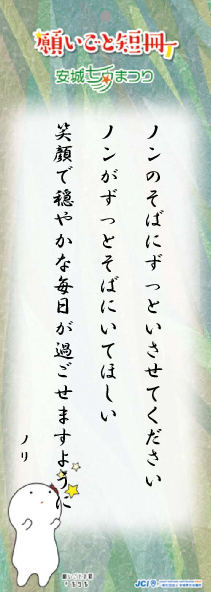 願いごと短冊
安城七夕まつり
ノンのそばにずっといさせてください
ノンがずっとそばにいてほしい
笑顔で穏やかな毎日が過ごせますように
ノリ
JCI